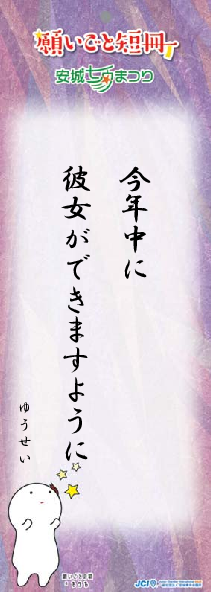 願いごと短冊
安城七夕まつり
今年中に
彼女ができますように
ゆうせい
JCI